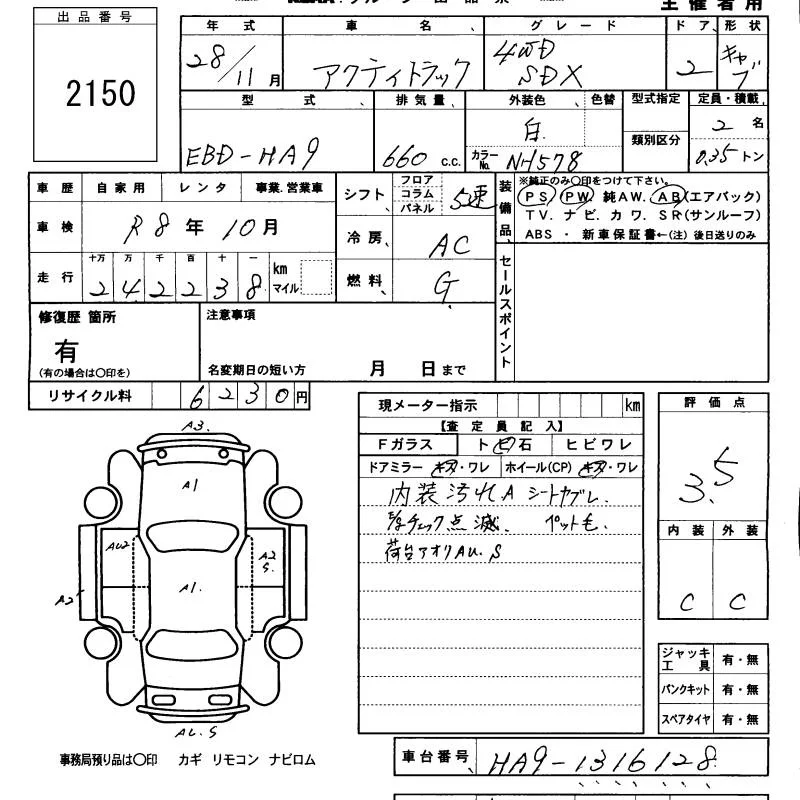 出品番号
2150
主催者用
年式 車名 グレード ドア 形状
28/11月 アクティトラック 4WD SDX 2 キャブ
型式 排気量 外装色 色替 型式指定 定員・積載
EBD-HA9 660 c.c. 白 類別区分 2名
カラーNo. NH578 0.35トン
車歴 自家用 レンタ 事業.営業車
車検 R8年10月
走行 十万 万 千 百 十 一
242238 km マイル
シフト フロア コラム パネル 5速
冷房 AC
燃料 G
装備品 ※純正のみ〇印をつけて下さい。
PS PW 純AW. AB(エアバック)
TV. ナビ. カワ. SR(サンルーフ)
ABS ・ 新車保証書←(注) 後日送りのみ
セールスポイント
修復歴 箇所
有
(有の場合は〇印を)
注意事項
名変期日の短い方 月 日まで
リサイクル料 6230円
現メーター指示 km
【査定員記入】
Fガラス トビ石 ヒビワレ
ドアミラー キズ・ワレ ホイール(CP) キズ・ワレ
内装汚れA シートヤブレ.
チェック点滅. ペット毛.
荷台アオリAU.S
評価点
3.5
内装 外装
C C
ジャッキ工具 有・無
パンクキット 有・無
スペアタイヤ 有・無
A3.
A1
AU2
A2
S.
A2
A1.
AU.S
事務局預り品は〇印 カギ リモコン ナビロム
車台番号 HA9-1316128